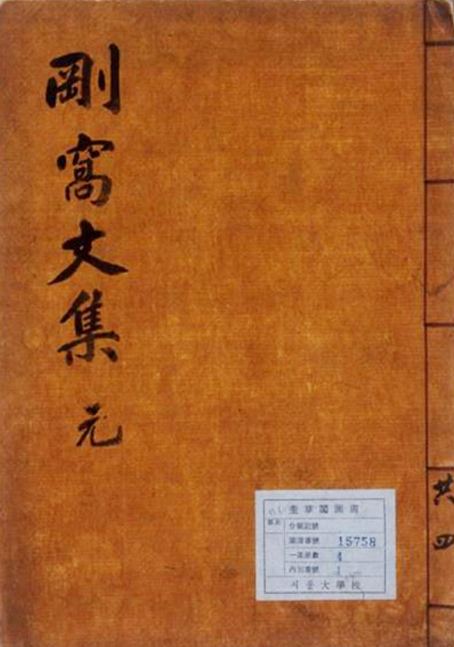 剛窩文集 元
共四
奎章閣圖書
分類記號
圖書番號 15758
一部冊數 4
內別番號 1
서울大學校